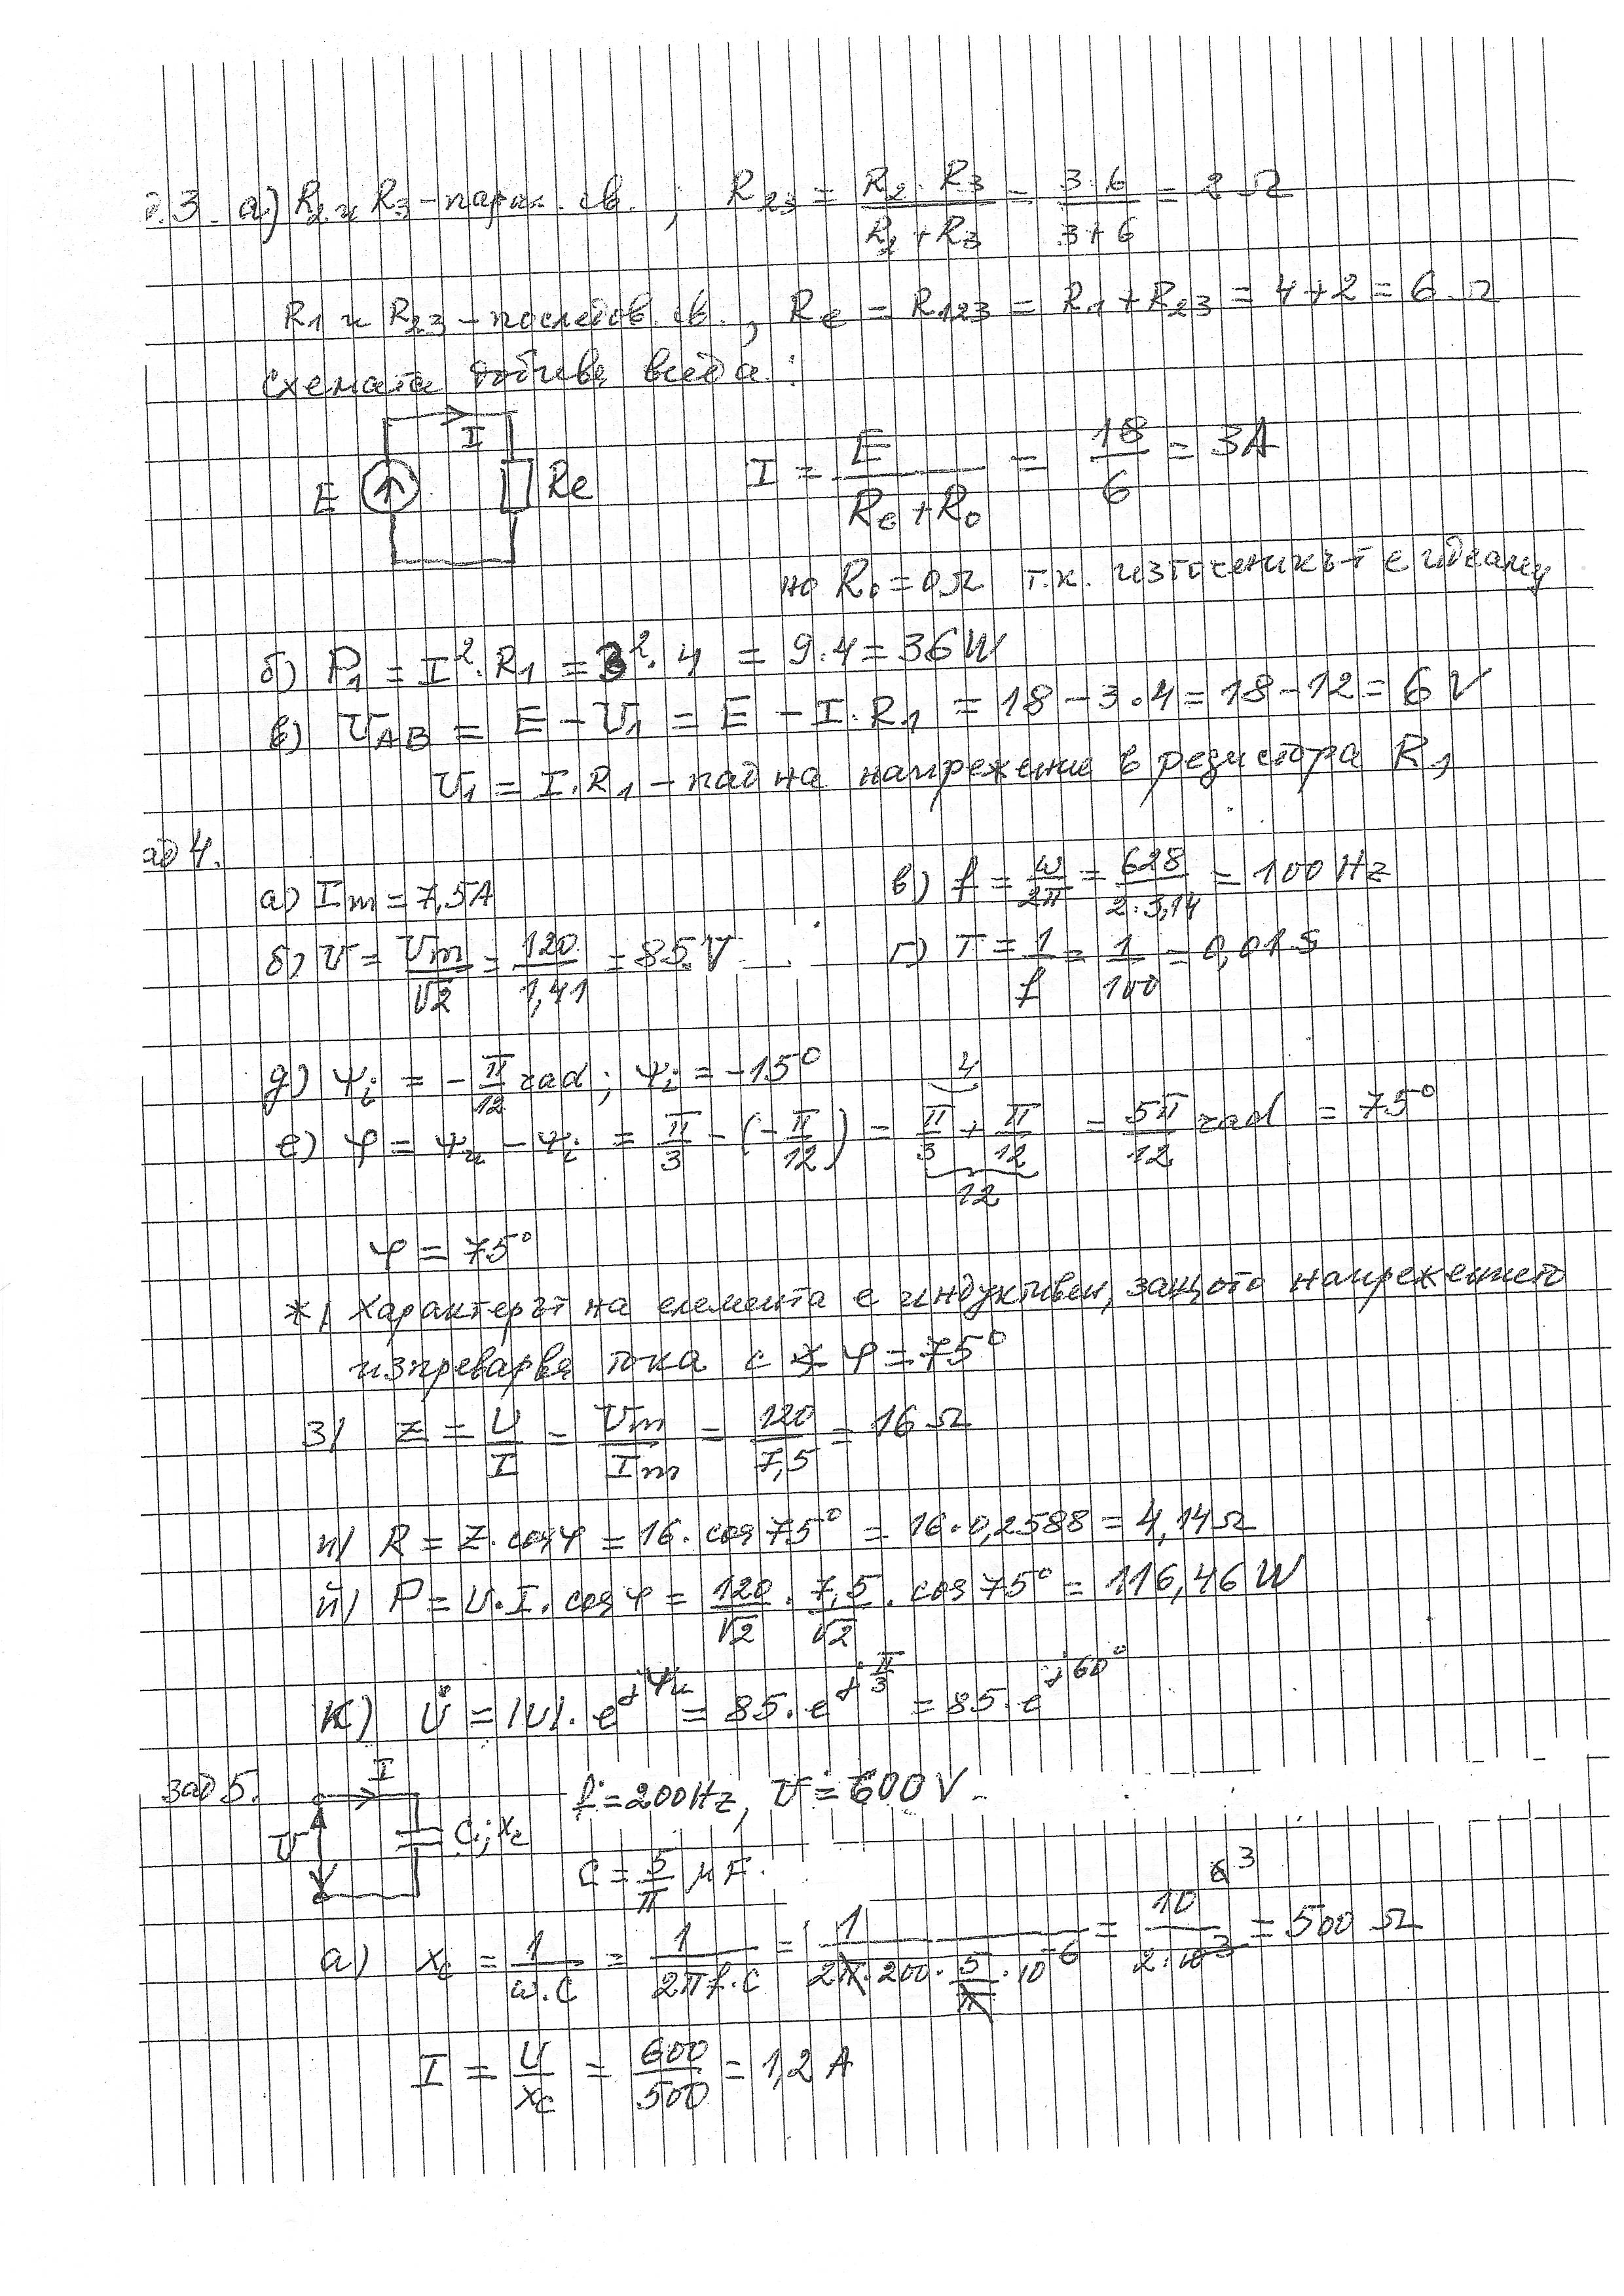 .3. а) R2 и R3 – парал. св. ; R23 = R2 . R3 / R2 + R3 = 3.6 / 3+6 = 2 Ω
R1 и R23 – последов. св., Re = R123 = R1 + R23 = 4+2 = 6 Ω
схемата добива вида:
E I Re I = E / Re + R0 = 18 / 6 = 3A
но R0 = 0Ω т.к. източникът е идеален
б) P1 = I². R1 = 3². 4 = 9.4 = 36 W
в) UAB = E – U1 = E – I. R1 = 18 – 3.4 = 18 – 12 = 6 V
U1 = I. R1 – пад на напрежение в резистора R1
ад 4.
а) Im = 7,5A в) f = ω / 2π = 628 / 2.3,14 = 100 Hz
б) U = Um / √2 = 120 / 1,41 = 85 V г) T = 1 / f = 1 / 100 = 0,01 s
д) ψi = – π / 12 rad ; ψi = –15°
е) φ = ψu – ψi = π / 3 – (– π / 12) = π / 3 + π / 12 = 5π / 12 rad = 75°
4
12
φ = 75°
ж) Характерът на елемента е индуктивен, защото напрежението
изпреварва тока с ∡ φ = 75°
з) Z = U / I = Um / Im = 120 / 7,5 = 16 Ω
и) R = Z. cosφ = 16. cos 75° = 16.0,2588 = 4,14 Ω
й) P = U. I. cosφ = 120 / √2 . 7,5 / √2 . cos 75° = 116,46 W
к) U̇ = |U|. e^jψu = 85. e^jπ/3 = 85. e^j60°
зад 5. I U C; xc f = 200Hz, U = 600 V
C = 5 / π μF.
а) xc = 1 / ω.C = 1 / 2πf.C = 1 / 2π.200. 5/π .10^-6 = 10^3 / 2 = 500 Ω
I = U / xc = 600 / 500 = 1,2 A